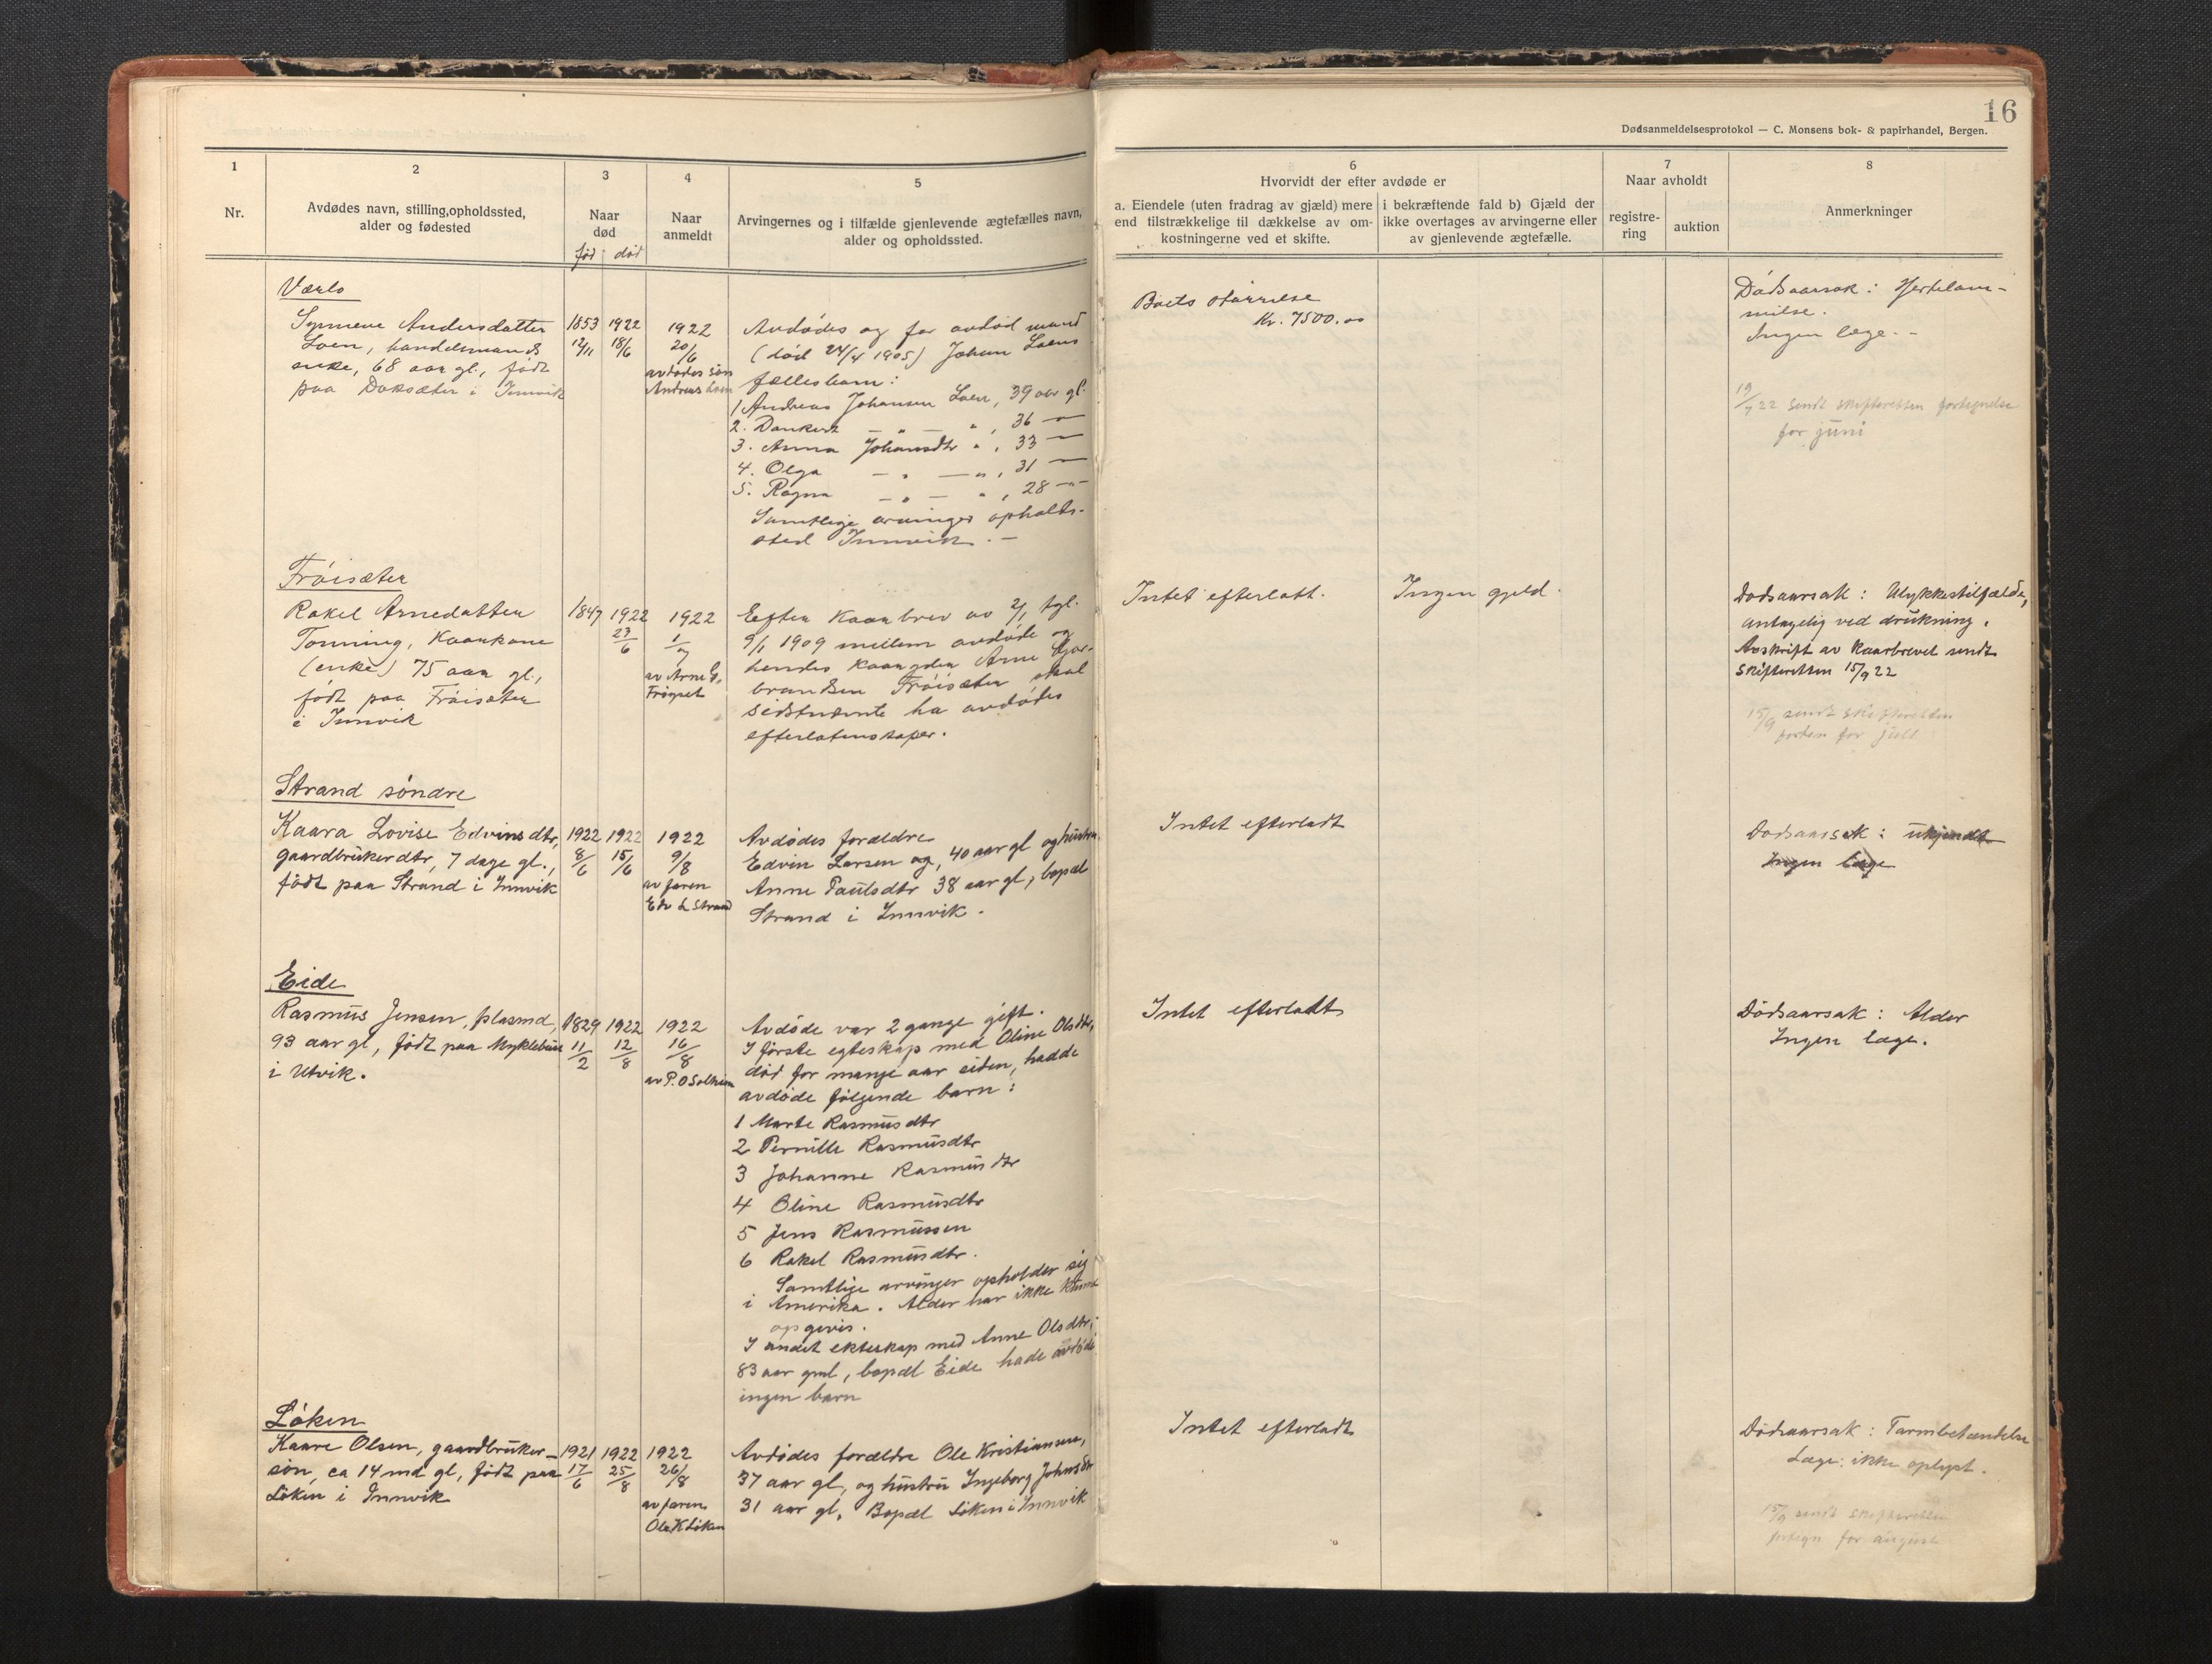 16
Dødsanmeldelsesprotokol — C. Monsens bok- & papirhandel, Bergen.
1
Nr.
2
Avdødes navn, stilling, opholdssted,
alder og fødested
3
Naar
død
fød død
4
Naar
anmeldt
5
Arvingernes og i tilfælde gjenlevende ægtefælles navn,
alder og opholdssted.
6
Hvorvidt der efter avdøde er
a. Eiendele (uten fradrag av gjæld) mere
end tilstrækkelige til dækkelse av om-
kostningerne ved et skifte.
i bekræftende fald b) Gjæld der
ikke overtages av arvingerne eller
av gjenlevende ægtefælle.
7
Naar avholdt
registre-
ring
auktion
8
Anmerkninger
Synneve Andersdatter
Loen, handelsmands
enke, 68 aar gl., født
paa Doksæter i Innvik
1853
12/11
1922
18/6
1922
20/6
avdødes søn
Andreas Loen
Avdødes og før avdød mand
(død 24/4 1905) Johan Loens
fællesbarn:
1. Andreas Johansen Loen, 39 aar gl.
2. Dankert — " — " , 36 —
3. Anna Johansdtr " , 33 —
4. Olga — " — " , 31 —
5. Ragna — " — " , 28 — " —
Samtlige arvinger opholds-
sted Innvik. —
Boets størrelse
Kr. 7500.00
Dødsaarsak: Hjertelam-
melse.
Ingen læge. —
19/7 22 sendt skifteretten fortegnelse
for juni
Frøisæter
Rakel Arnedatter
Tonning, Kaarkone
(enke) 75 aar gl.,
født paa Frøisæter
i Innvik
1847
1922
27/6
1922
1/7
av Arne G.
Efter Kaarbrev av 2/1 tgl.
9/1 1909 mellem avdøde og
hendes Arne Gjor-
brandsen Frøisæter skal
sidstnævnte ha avdødes
efterlatenskaper.
Intet efterlatt.
Ingen gjeld.
Dødsaarsak: Ulykkestilfælde,
antagelig ved drukning.
Avskrift av Kaarbrevet sendt
Skifteretten 15/9 22
15/9 sendt skifteretten
forten for juli
Strand søndre
Kaara Lovise Edvinsdtr,
gaardbrukerdtr, 7 dage gl.,
født paa Strand i Innvik
1922
8/6
1922
15/6
1922
9/8
av faren
Edv L Strand
Avdødes forældre
Edvin Larsen og, 40 aar gl og hustru
Anne Paulsdtr 38 aar gl, bopæl
Strand i Innvik.
Intet efterladt
Dødsaarsak: ukjendt
Ingen læge
Eide
Rasmus Jensen, plasmd,
93 aar gl, født paa Myklebust
i Utvik.
1829
11/2
1922
12/8
1922
16/8
av P. O Solheim
Avdøde var 2 gange gift.
I første egteskap med Oline Olsdtr,
død for mange aar siden, hadde
avdøde følgende barn:
1 Marte Rasmusdtr
2 Pernille Rasmusdtr
3 Johanne Rasmusdtr
4 Oline Rasmusdtr
5 Jens Rasmussen
6 Rakel Rasmusdtr.
Samtlige arvinger opholder sig
i Amerika. Alder har ikke kunne
opgives.
I andet ekteskap med Anne Olsdtr,
83 aar gml, bopæl Eide hade avdøde
ingen barn
Intet efterladt
Dødsaarsak: Alder
Ingen læge.
Løken
Kaare Olsen, gaardbruker-
søn, ca 14 md gl, født paa
Løken i Innvik
1921
17/6
1922
25/8
1922
26/8
av faren
Ole K Løken
Avdødes forældre Ole Kristiansen,
37 aar gl, og hustru Ingeborg Johnsdtr
31 aar gl, Bopæl Løken i Innvik
Intet efterladt
Dødsaarsak: Tarmbetændelse
Læge: ikke oplyst.
15/9 sendt skifteretten
for august